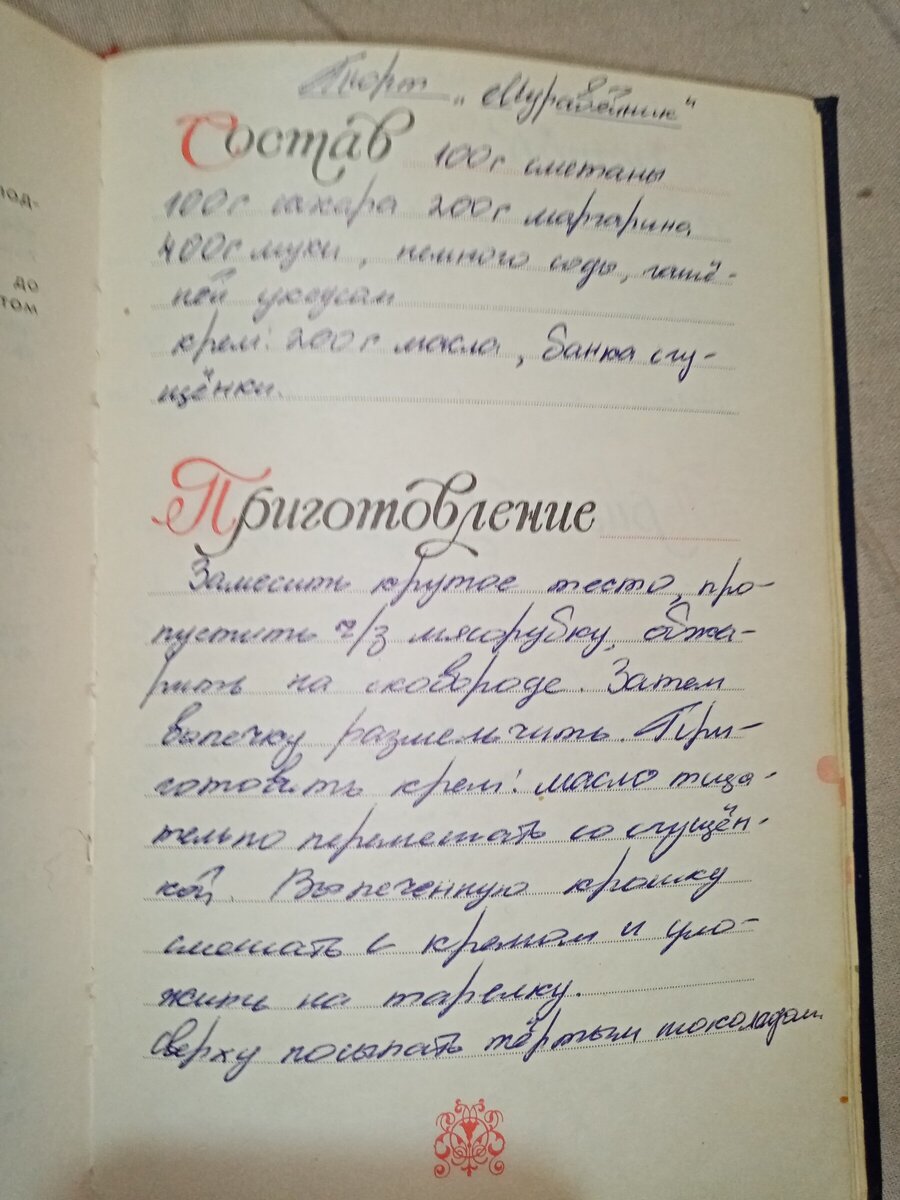 Торт „Муравейник“
Состав 100г сметаны
под-
100г сахара 200г маргарина
400г муки, немного соды, гашё-
до
ной уксусам
том
крем: 200г масла, банка сгу-
щёнки.
Приготовление
Замесить крутое тесто, про-
пустить ч/з мясорубку, обжа-
рить на сковороде. Затем
выпечку размельчить. При-
готовить крем: масло тща-
тельно перемешать со сгущён-
кой. Выпеченную крошку
смешать с кремом и уло-
жить на тарелку.
Сверху посыпать тёртым шоколадом.